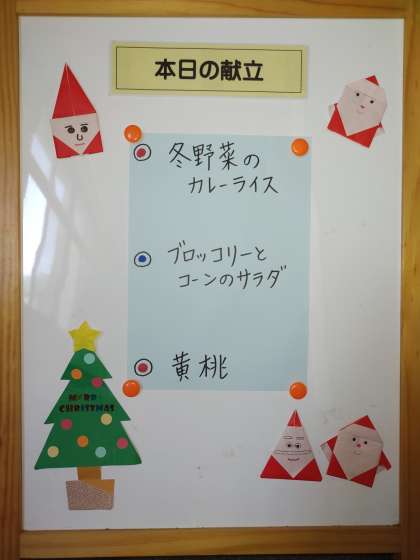 本日の献立
冬野菜の
カレーライス
ブロッコリーと
コーンのサラダ
黄桃
MERRY
CHRISTMAS